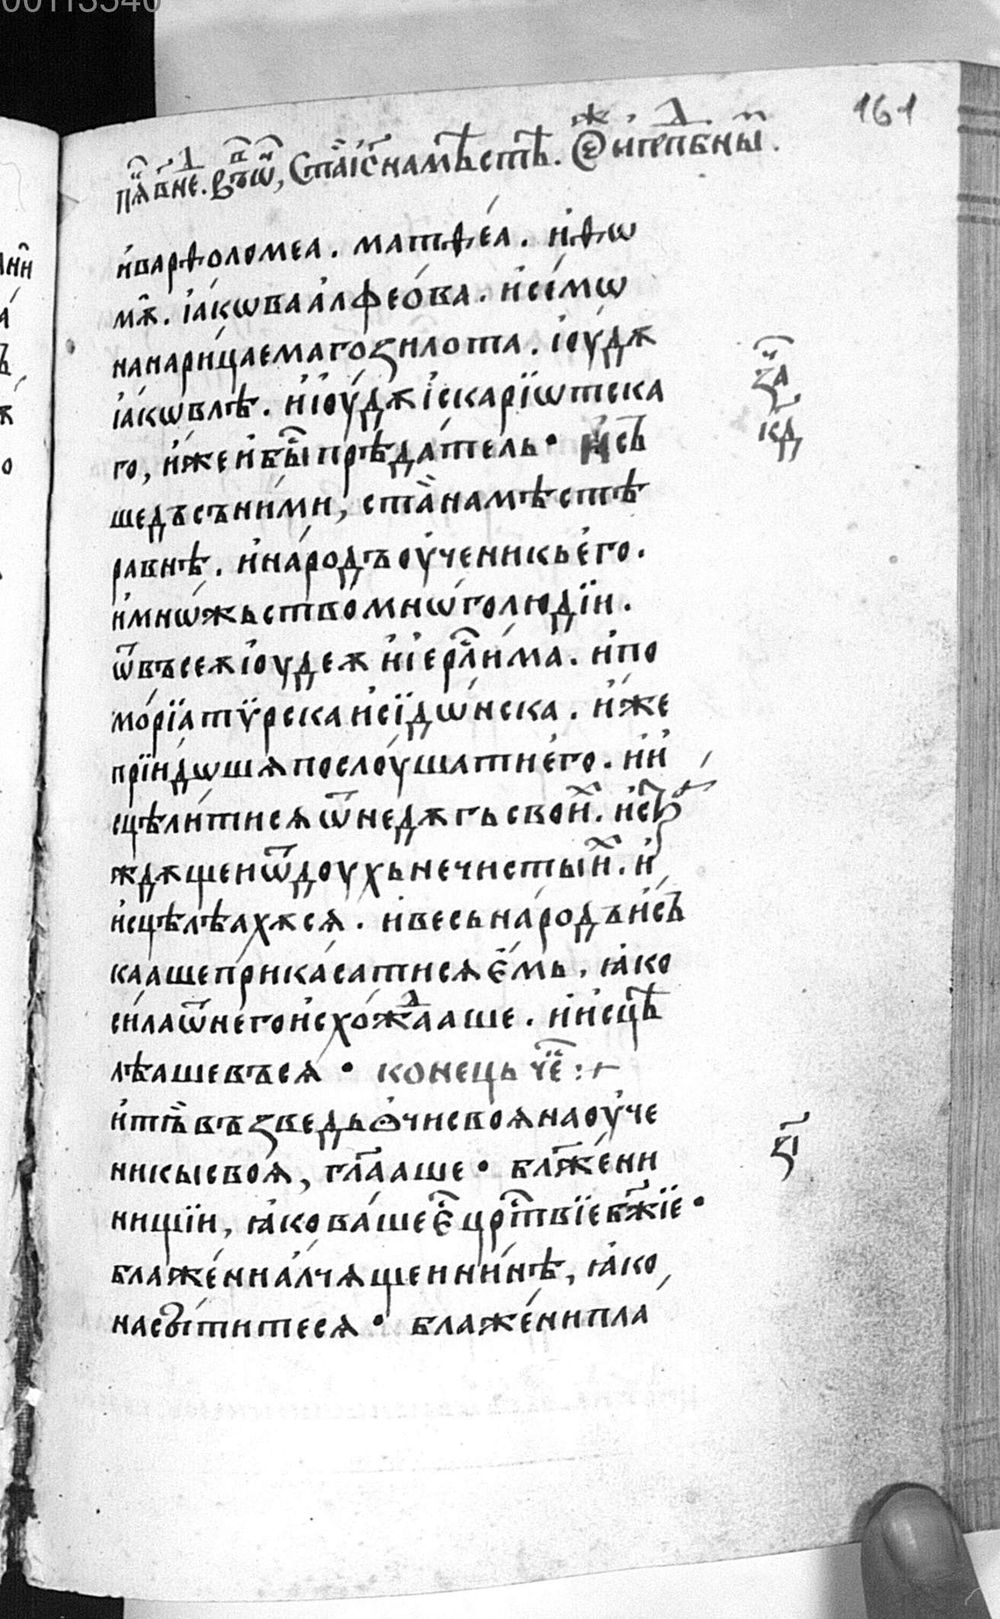 161
и҆варѳоломеа. матѳе́а. и҆ѳѡ
мѫ. і҆а́кѡваа҆лфео́ва. и҆се́мѡ
нанари́цаемагоѕилота. і҆оу́дѫ
і҆а́кѡвлѣ. и҆і҆оу́дѫі҆скарїѡтска
го, и҆жеи҆бы́прѣда́тель • и҆съ
шедъсъни́ми, стана̀мѣстѣ
равнѣ. и҆наро́дъоу҆ченикье҆го.
имнѡ́жьствомнѡ́голюді́и.
ѿвъсеѫі҆оудеѫ и҆і҆ер҇лима. и҆по
мо́рїатѵ́рскаи҆сїдѡ́нска. и҆́же
прїидѡшѧпослоу́шатие҆го. и҆и҆
сцѣли́тисѧѿнедѫгьсвои́х. и҆ст҇р
ѫдѫщеиѿдоухьнечистыи́х. и҆
и҆сцѣлѣахѫсѧ. и҆весьнаро́дъи҆съ
каашеприкаса́тисѧе҆́мь. ꙗ҆ко
си́лаѿнегои҆схожⷣааше. и҆и҆сцѣ
лѣашевъсѧ • конець че҃:+
и҆тъ̀въѕведьѻ҆чисвоѧнаоу҆че
никысвоѧ, гл҃ааше • бл҃же́ни
ни́щїи, ꙗ҆кова́шее҆҇цр҇твїеб҃жїе •
блаже́ниа́лчѧщеини́нѣ, ꙗ҆ко
насы́титесѧ • блаже́нипла
ѕ҃і